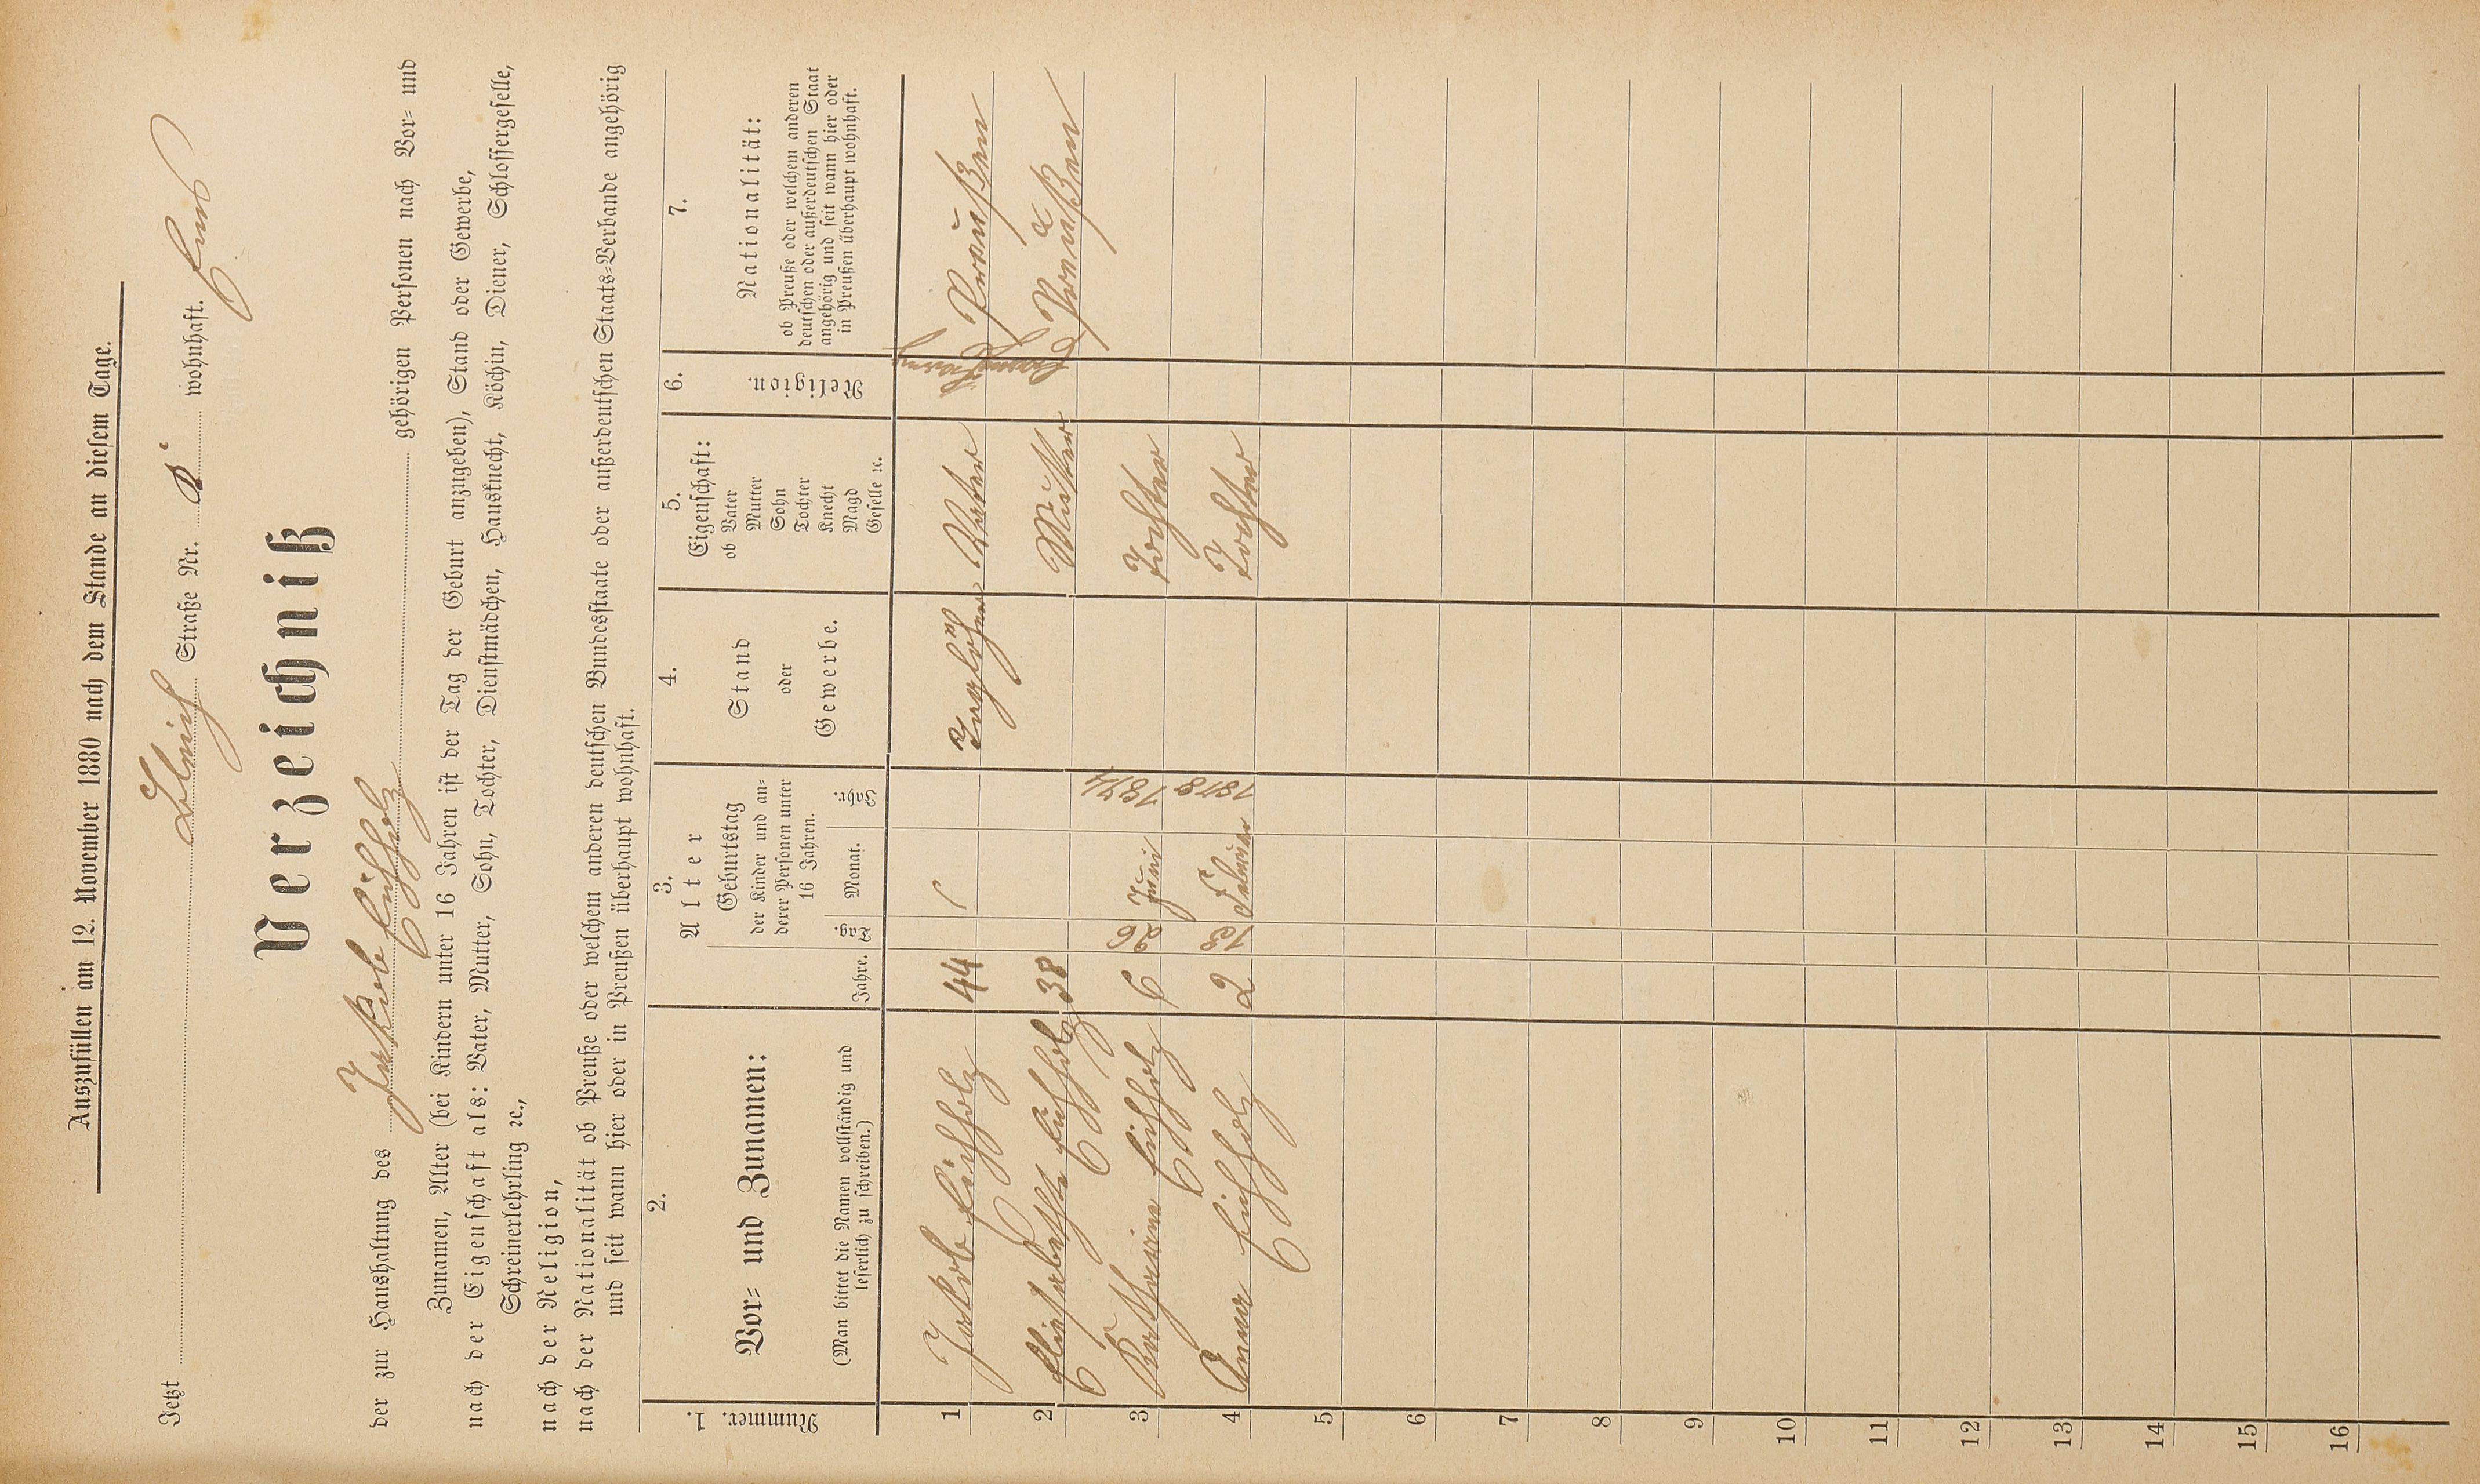 Auszufüllen am 12. November 1880 nach dem Stande an diesem Tage.
Jetzt Straße Nr. 8 wohnhaft.
Verzeichniß
der zur Haushaltung des Jakob Eichholz gehörigen Personen nach Vor- und
Zunamen, Alter (bei Kindern unter 16 Jahren ist der Tag der Geburt anzugeben), Stand oder Gewerbe,
nach der Eigenschaft als: Vater, Mutter, Sohn, Tochter, Dienstmädchen, Hausknecht, Köchin, Diener, Schlossergeselle,
Schreinerlehrling ꝛc.,
nach der Religion,
nach der Nationalität ob Preuße oder welchem anderen deutschen Bundesstaate oder außerdeutschen Staats-Verbande angehörig
und seit wann hier oder in Preußen überhaupt wohnhaft.
1. Nummer.
2. Vor- und Zunamen:
(Man bittet die Namen vollständig und
leserlich zu schreiben.)
3. Alter
Jahre.
Geburtstag
der Kinder und an-
derer Personen unter
16 Jahren.
Tag. Monat. Jahr.
4. Stand
oder
Gewerbe.
5. Eigenschaft:
ob Vater
Mutter
Sohn
Tochter
Knecht
Magd
Geselle ꝛc.
6. Religion.
7. Nationalität:
ob Preuße oder welchem anderen
deutschen oder außerdeutschen Staat
angehörig und seit wann hier oder
in Preußen überhaupt wohnhaft.
1 Jakob Eichholz 44 Taglöhner Vater Praußen
2 Eliesabethe Eichholz 38 Mutter Preußen
3 Katharina Eichholz 6 26 Juni 1874 Tochter
4 Anna Eichholz 2 13 Februar 1878 Tochter
5
6
7
8
9
10
11
12
13
14
15
16